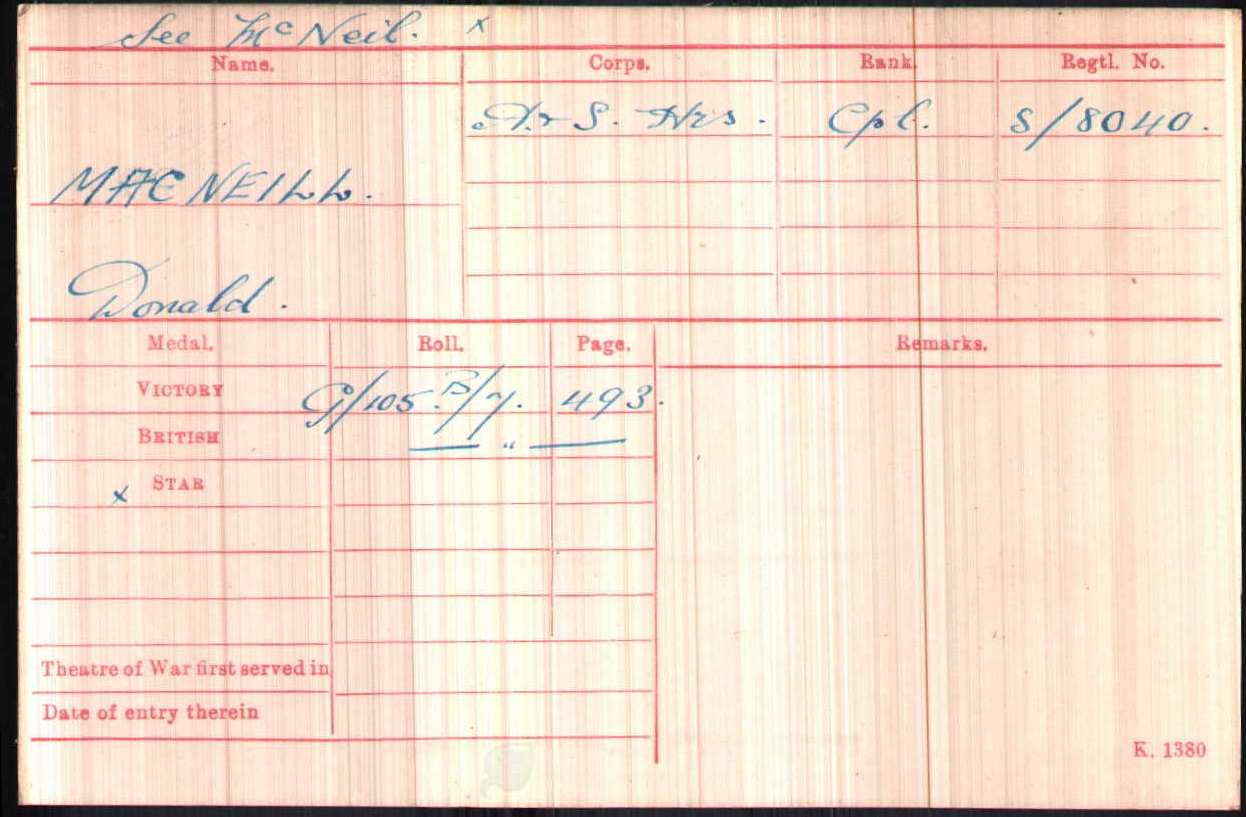 See McNeil. x
Name. Corps. Rank. Regtl. No.
A.& S. Hrs. Cpl. S/8040.
MACNEILL.
Donald.
Medal. Roll. Page. Remarks.
VICTORY G/105.B/7. 493.
BRITISH — " —
x STAR
Theatre of War first served in
Date of entry therein
K. 1380